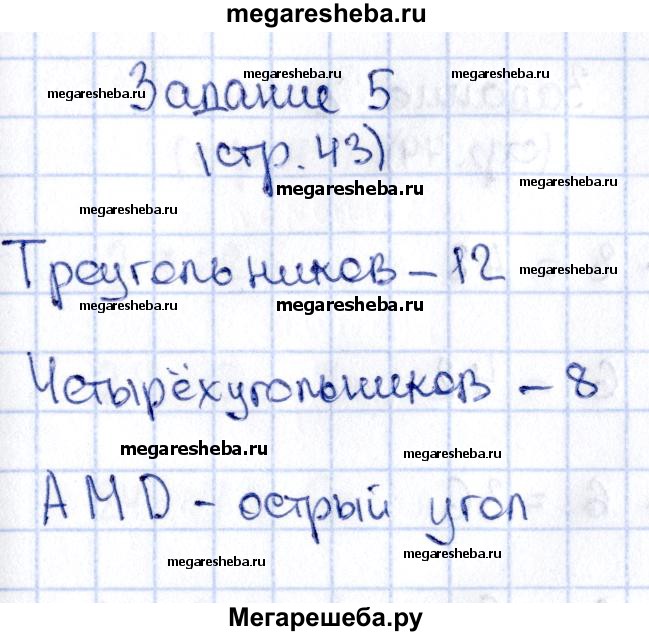 megaresheba.ru
Задание 5
megaresheba.ru megaresheba.ru megaresheba.ru
(стр. 43)
megaresheba.ru megaresheba.ru
megaresheba.ru
Треугольников – 12
megaresheba.ru
megaresheba.ru megaresheba.ru
Четырёхугольников – 8
megaresheba.ru megaresheba.ru
AMD – острый угол
megaresheba.ru megaresheba.ru
Мегарешеба.ру